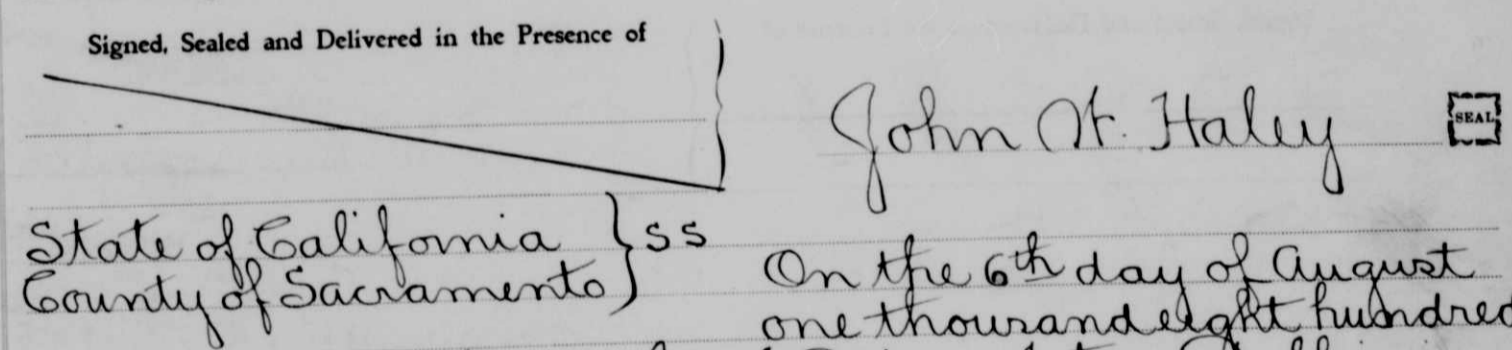 Signed, Sealed and Delivered in the Presence of
John H. Haley
SEAL
State of California } ss
County of Sacramento }
On the 6th day of August
one thousand eight hundred